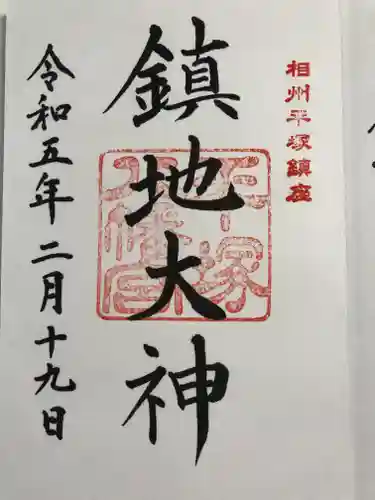 相州平塚鎮座
鎮地大神
平塚八幡宮
令和五年二月十九日